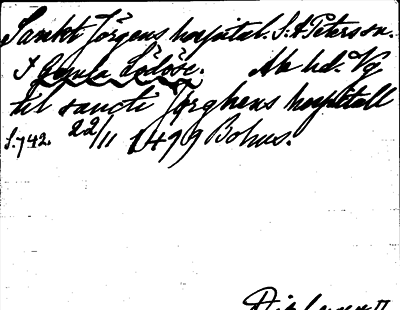 Sankt Jörgens hospital. S. A. Peterson.
I Gamla Lödöse. Ak hd. Vg
til sancti Jörghens hospitall
S. 742. 22/11 1499 Bohus.